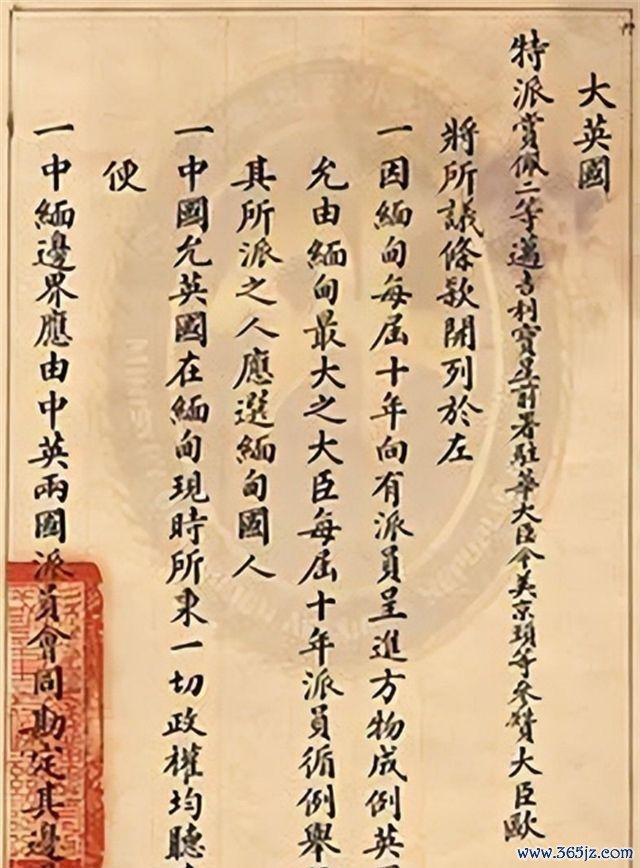 大英國
特派賞佩二等邁吉利寶星前署駐華大臣今美京頭等參贊大臣歐
將所議條款開列於左
一因緬甸每屆十年向有派員呈進方物成例英
允由緬甸最大之大臣每屆十年派員循例舉
其所派之人應選緬甸國人
一中國允英國在緬甸現時所秉一切政權均聽
便
一中緬邊界應由中英兩國派員會同勘定其邊
www.365jz.com